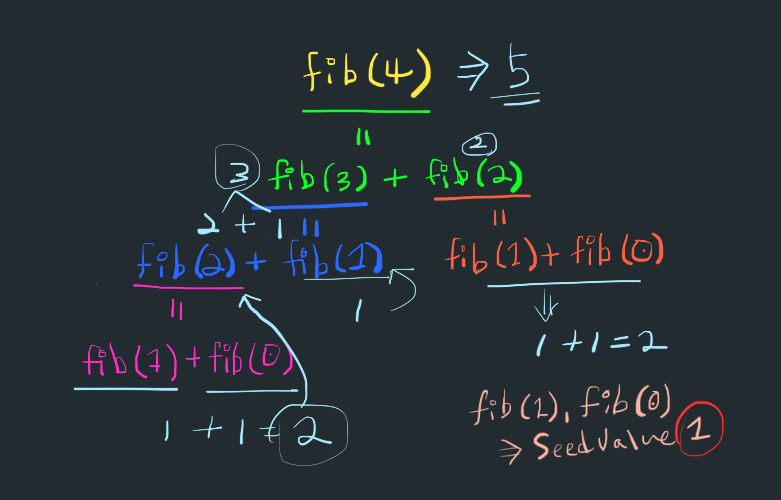 fib(4) ⇒ 5
॥
2
3 fib(3) + fib(2)
2 + 1 ॥ ॥
fib(2) + fib(1) fib(1) + fib(0)
॥ 1 ⇓
1 + 1 = 2
fib(1) + fib(0)
fib(1), fib(0)
1 + 1 = 2
⇒ Seed Value 1